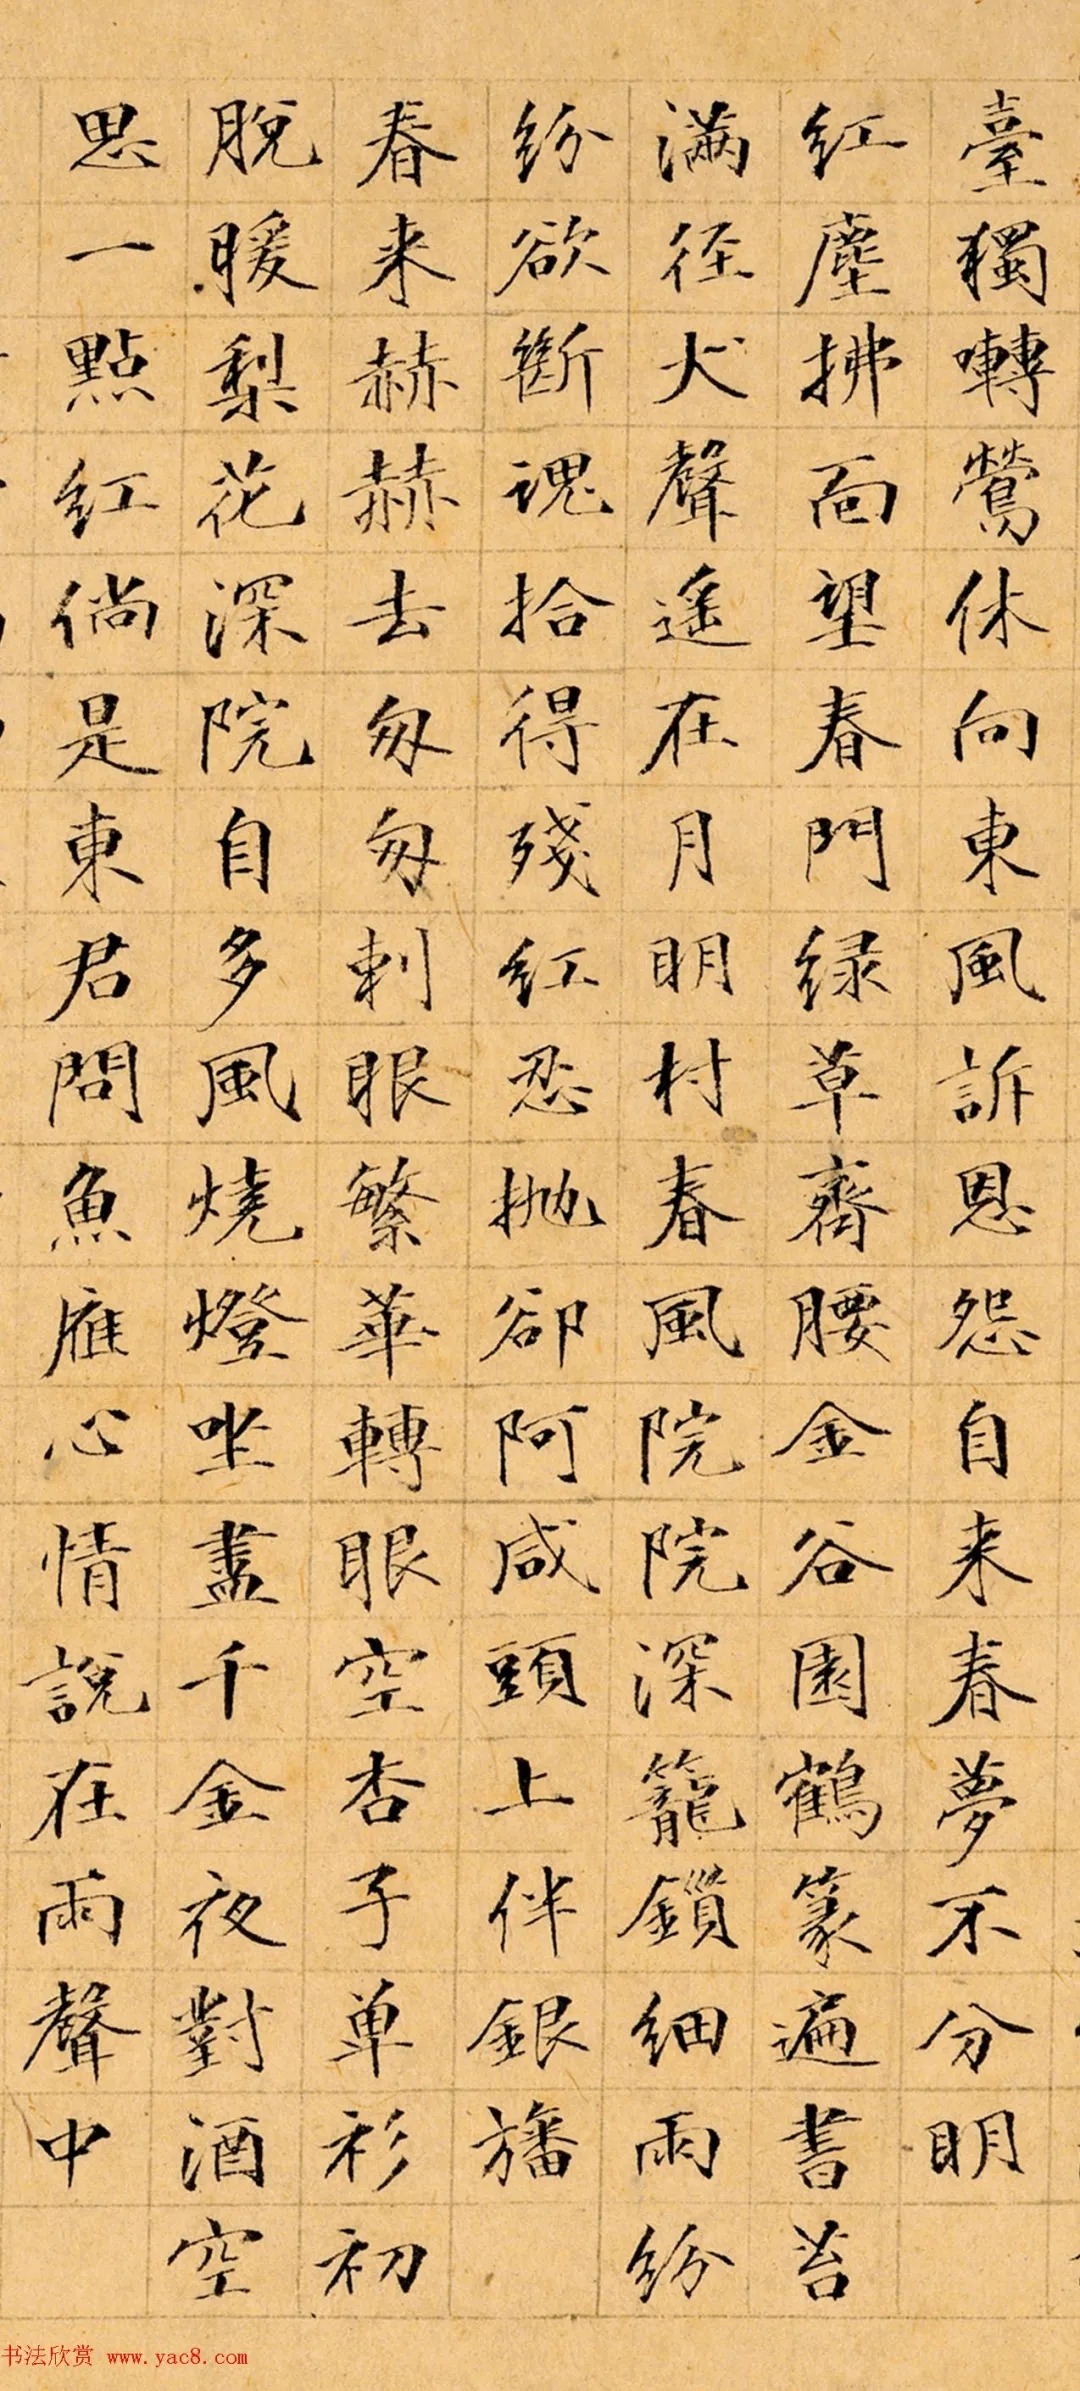 臺獨囀鶯休向東風訴恩怨自来春夢不分明
紅塵拂面望春門緑草齊腰金谷園鶴篆遍書苔
滿径犬聲遥在月明村春風院院深籠鎖細雨紛
紛欲斷魂拾得殘紅忍抛卻阿咸頭上伴銀旛
春来赫赫去匆匆刺眼繁華轉眼空杏子单衫初
脫暖梨花深院自多風燒燈坐盡千金夜對酒空
思一點紅倘是東君問魚雁心情說在雨聲中
书法欣赏 www.yac8.com